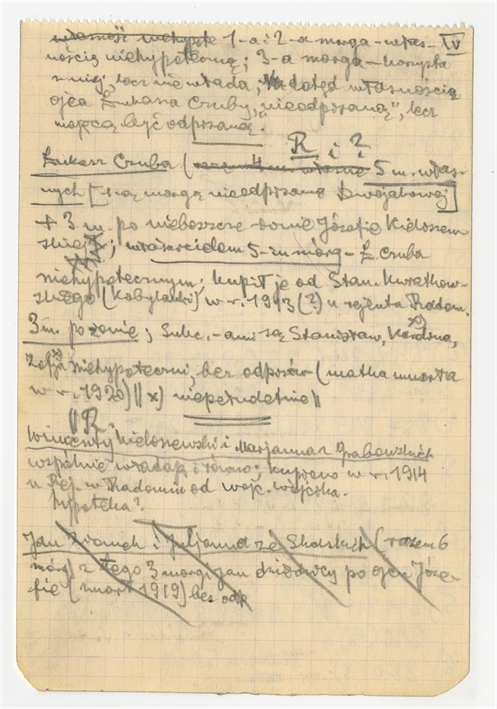 własność niehypote 1-a i 2-a morga - włas- IV
nością niehypoteczną; 3-a morga - korzysta
z niej, lecz nie włada, dotąd własnością
ojca Łukasza Czuby, "nieodpisaną", lecz
mającą być odpisaną."
R i ?
Łukasz Czuba ( 5 m. włas-
nych [1-ą morgą nieodpisaną
+ 3 m. po nieboszczce żonie Józefie Kieloszew-
skiej; właścicielem 5-ciu mórg - Ł. Czuba
niehypotecznym; kupił je od Stan. Kwiatkow-
skiego (Kobylański) w r. 1913 (?) u rejenta Radom.
3 m. po żonie; Sukc.-ami są Stanisław, Karolina, x)
Zofja niehypoteczni, bez odpisów (matka umarła
w r. 1920) || x) niepełnoletnie ||
|| R
Wincenty Kieloszewski i Marjanna z Grabowskich
wspólnie władają i równo; kupiono w r. 1914
u Rej. w Radomiu od Wojc. Wójcika.
hypoteka?
Jan i Juljanna ze Skalskich (razem 6
mórg z tego 3 morgi Jan dziedziczy po ojcu Józe-
fie (zmarł 1919) bez odp